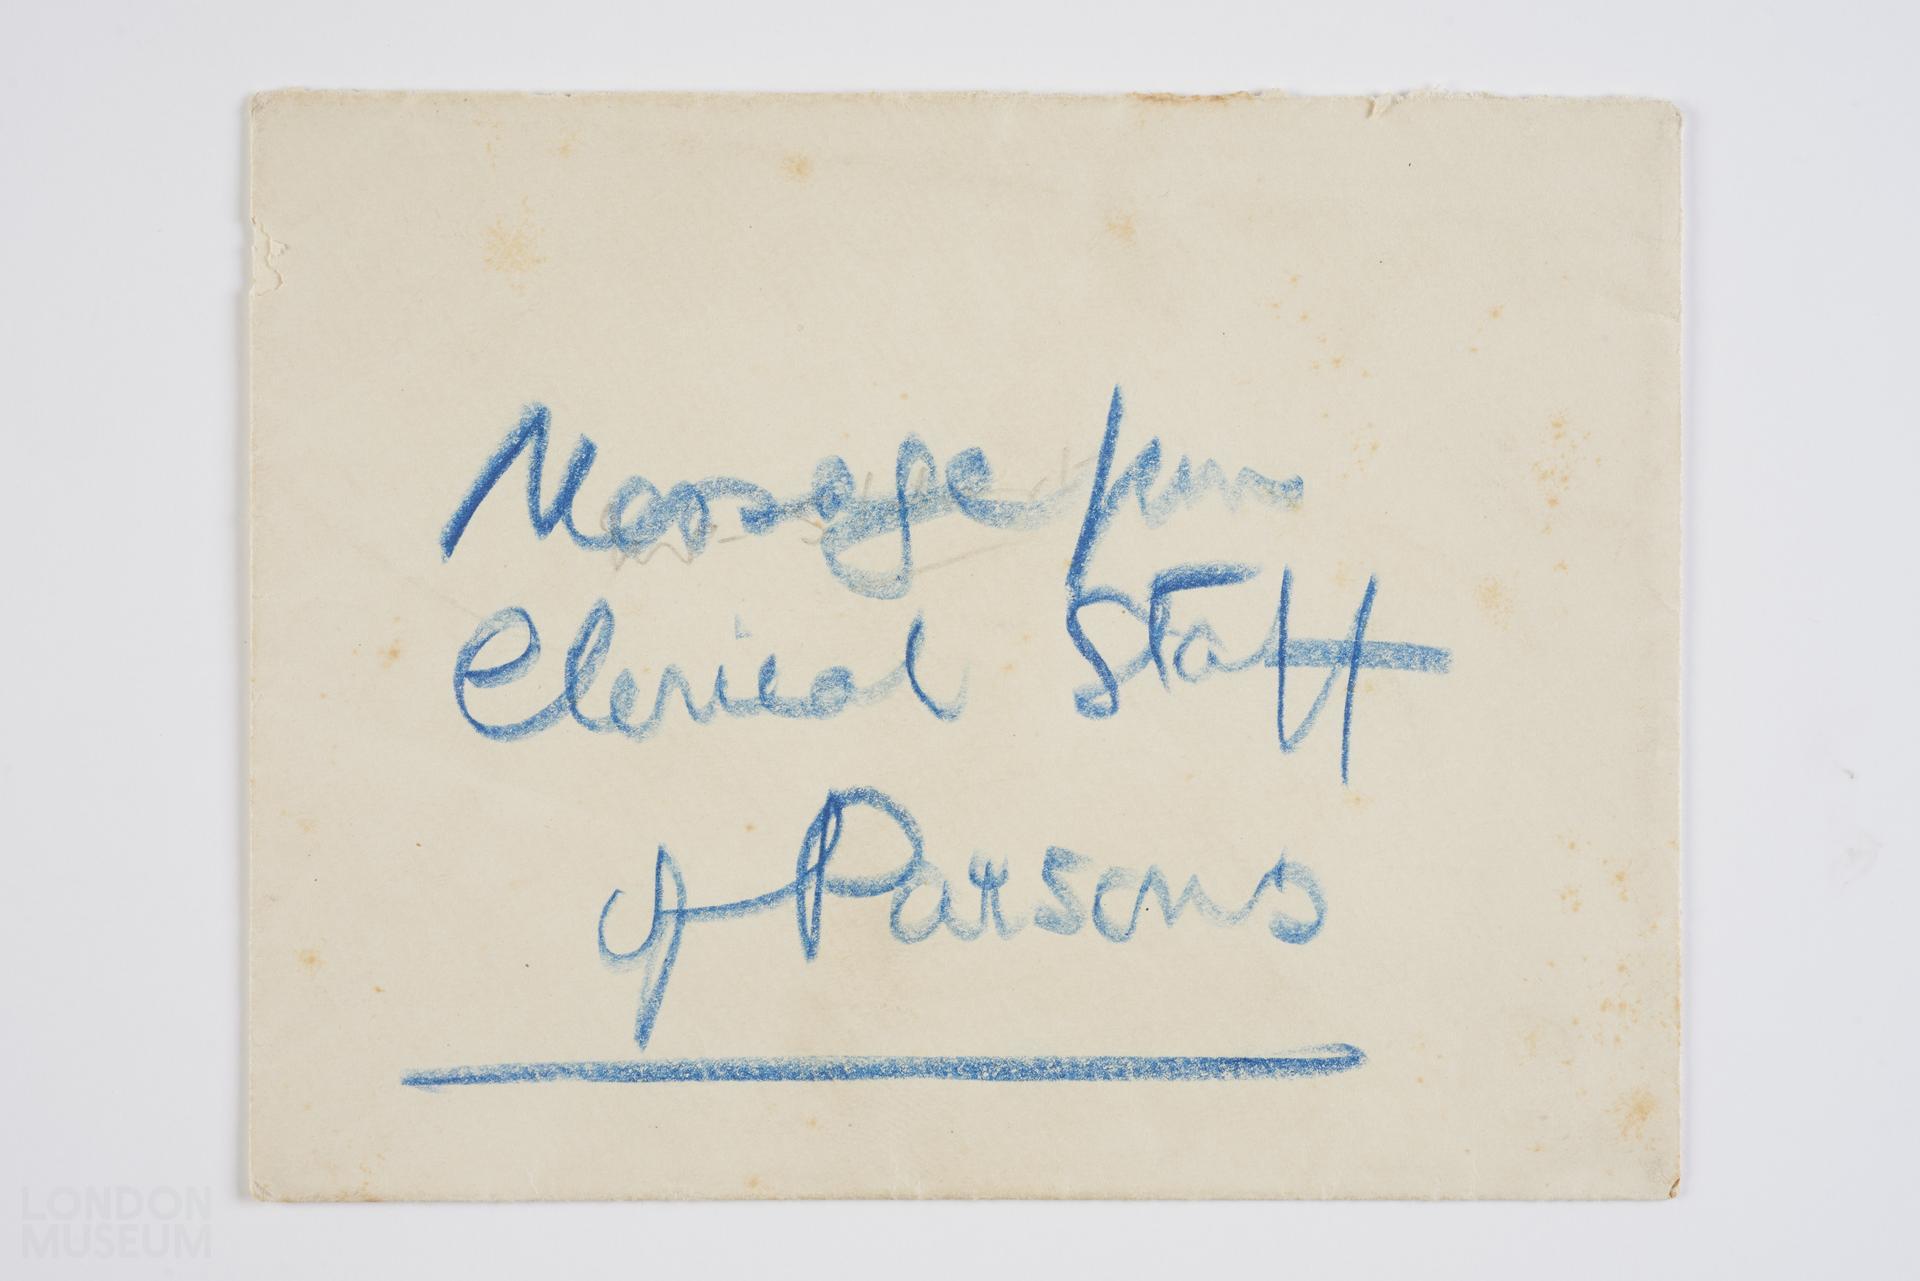 Message from
Clerical Staff
of Parsons
LONDON
MUSEUM